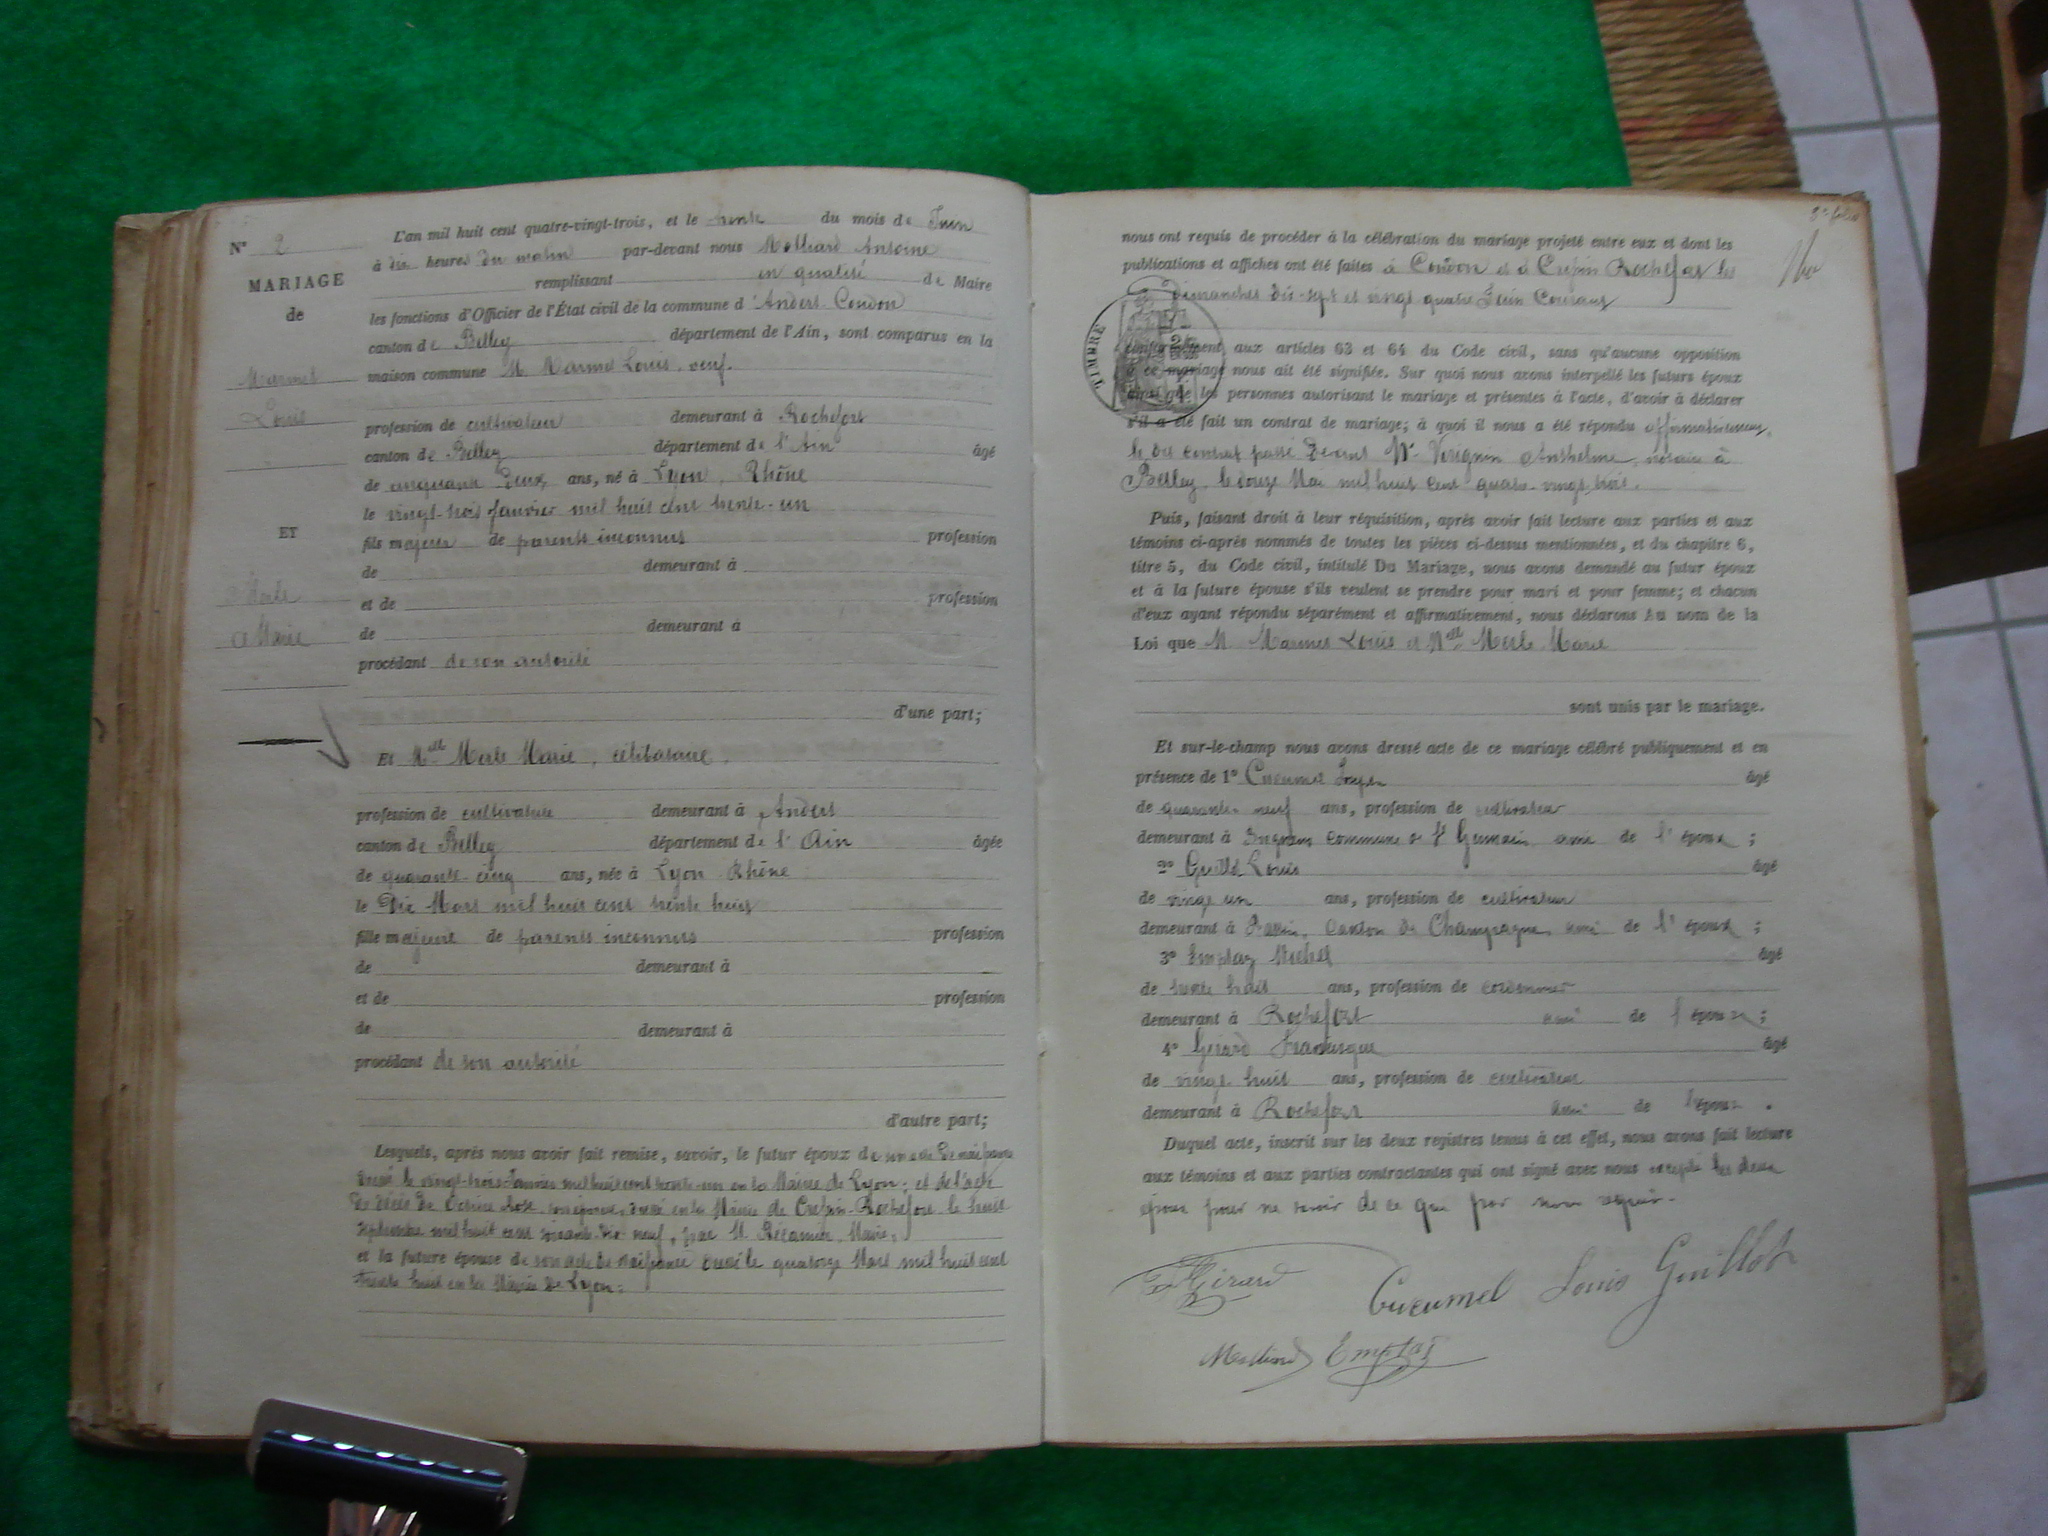 N° 2
MARIAGE
de
Marmet
Louis
ET
Merle
Marie
L'an mil huit cent quatre-vingt-trois, et le trente du mois de Juin
à dix heures du matin par-devant nous Molliard Antoine
remplissant en qualité de Maire
les fonctions d'Officier de l'État civil de la commune d'Andert-Condon
canton de Belley département de l'Ain, sont comparus en la
maison commune M. Marmet Louis, veuf.
profession de cultivateur demeurant à Rochefort
canton de Belley département de l'Ain âgé
de cinquante deux ans, né à Lyon, Rhône
le vingt-trois Janvier mil huit cent trente-un
fils majeur de parents inconnus profession
de demeurant à
et de profession
de demeurant à
procédant de son autorité
d'une part;
Et Mlle Merle Marie, célibataire,
profession de cultivatrice demeurant à Andert
canton de Belley département de l'Ain âgée
de quarante-cinq ans, née à Lyon Rhône
le Dix Mars mil huit cent trente huit
fille majeure de parents inconnus profession
de demeurant à
et de profession
de demeurant à
procédant de son autorité
d'autre part;
Lesquels, après nous avoir fait remise, savoir, le futur époux de son acte de naissance
dressé le vingt-trois Janvier mil huit cent trente-un en la Mairie de Lyon; et de l'acte
de décès de Rose, son épouse, dressé en la Mairie de Crépin-Rochefort le huit
septembre mil huit cent soixante-dix-neuf, par M. Récamier, Maire,
et la future épouse de son acte de naissance dressé le quatorze Mars mil huit cent
trente huit en la Mairie de Lyon.
nous ont requis de procéder à la célébration du mariage projeté entre eux et dont les
publications et affiches ont été faites à Condon et à Crépin Rochefort les
Dimanches dix-sept et vingt quatre Juin Courant
TIMBRE
conformément aux articles 63 et 64 du Code civil, sans qu'aucune opposition
à ce mariage nous ait été signifiée. Sur quoi nous avons interpellé les futurs époux
ainsi que les personnes autorisant le mariage et présentes à l'acte, d'avoir à déclarer
s'il a été fait un contrat de mariage; à quoi il nous a été répondu affirmativement,
le dit contrat passé devant Me Anthelme, notaire à
Belley, le douze Mai mil huit cent quatre-vingt-trois.
Puis, faisant droit à leur réquisition, après avoir fait lecture aux parties et aux
témoins ci-après nommés de toutes les pièces ci-dessus mentionnées, et du chapitre 6,
titre 5, du Code civil, intitulé Du Mariage, nous avons demandé au futur époux
et à la future épouse s'ils veulent se prendre pour mari et pour femme; et chacun
d'eux ayant répondu séparément et affirmativement, nous déclarons au nom de la
Loi que M. Marmet Louis et Mlle Merle Marie
sont unis par le mariage.
Et sur-le-champ nous avons dressé acte de ce mariage célébré publiquement et en
présence de 1° Cucumel âgé
de quarante-neuf ans, profession de cultivateur
demeurant à commune de St Germain ami de l'époux ;
2° Guillot Louis âgé
de vingt un ans, profession de cultivateur
demeurant à canton de Champagne, ami de l'époux ;
3° Emptaz Michel âgé
de trente huit ans, profession de cordonnier
demeurant à Rochefort ami de l'époux ;
4° Girard Francisque âgé
de vingt huit ans, profession de cultivateur
demeurant à Rochefort ami de l'époux .
Duquel acte, inscrit sur les deux registres tenus à cet effet, nous avons fait lecture
aux témoins et aux parties contractantes qui ont signé avec nous excepté les deux
époux pour ne savoir de ce que par nous requis.
Girard Cucumel Louis Guillot
Molliard Emptaz